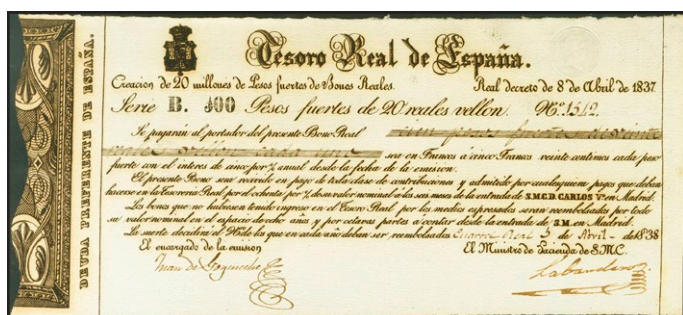 DEUDA PREFERENTE DE ESPAÑA.
Tesoro Real de España.
Creacion de 20 millones de Pesos fuertes de Bonos Reales.
Real decreto de 8 de Abril de 1837
Serie B. 100 Pesos fuertes de 20 reales vellon. Nº. 1542
Se pagarán al portador del presente Bono Real
sea en Francos á cinco Francos veinte centimos cada peso
fuerte con el interes de cinco por % anual desde la fecha de la emision.
El presente Bono será recivido en pago de toda clase de contribuciones y admitido por cualesquiera pagos que deban
hacerse en la Tesoreria Real por el ochenta por % de su valor nominal á los seis meses de la entrada de S.M.C.D. CARLOS Vº. en Madrid.
Los bonos que no hubiesen tenido ingreso en el Tesoro Real por los medios espresados seran reembolsados por todo
su valor nominal en el espacio de ocho años y por octavas partes à contar desde la entrada de S.M. en Madrid.
La suerte decidirá el Nº de los que en cada año deban ser reembolsados Cuartel Real de Abril de 1838
El encargado de la emision
El Ministro de Hacienda de S.M.C.
Labandero